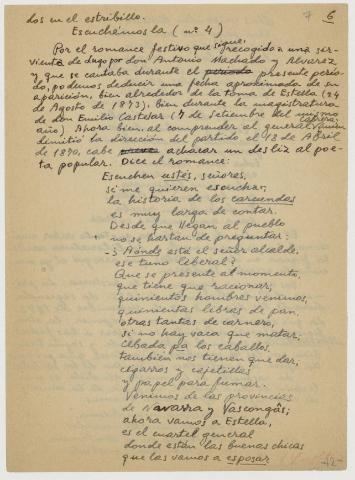 7 6
dos en el estribillo.
Escuchémosla (nº 4)
Por el romance festivo que sigue, recogido a una sir-
vienta de Lugo por don Antonio Machado y Alvarez
y que se cantaba durante el periodo presente perio-
do, podemos deducir una fecha aproximada de su
aparición, bien alrededor de la toma de Estella (24
de Agosto de 1873), bien durante la magistratura
de don Emilio Castelar (7 de Setiembre del mismo
año). Ahora bien, al comprender el general Cabrera, quien
dimitió la dirección del partido el 18 de Abril
de 1870, cabe achacar un desliz al poe-
ta popular. Dice el romance:
Escuchen ustés, señores,
si me quieren escuchar,
la historia de los carcundas
es muy larga de contar.
Desde que llegan al pueblo
no se hartan de preguntar:
- ¿Aónde está el señor alcalde,
ese tuno liberal?
Que se presente al momento,
que tiene que racionar;
quinientos hombres venimos,
quinientas libras de pan.
otras tantas de carnero,
si no hay vaca que matar;
cebada pa los caballos,
también nos tienen que dar;
cigarros y cajetillas
y papel para fumar.
Venimos de las provincias
de Navarra y Vascongás;
ahora vamos a Estella,
es el cuartel general
donde están las buenas chicas
que las vamos a esposar
-12-